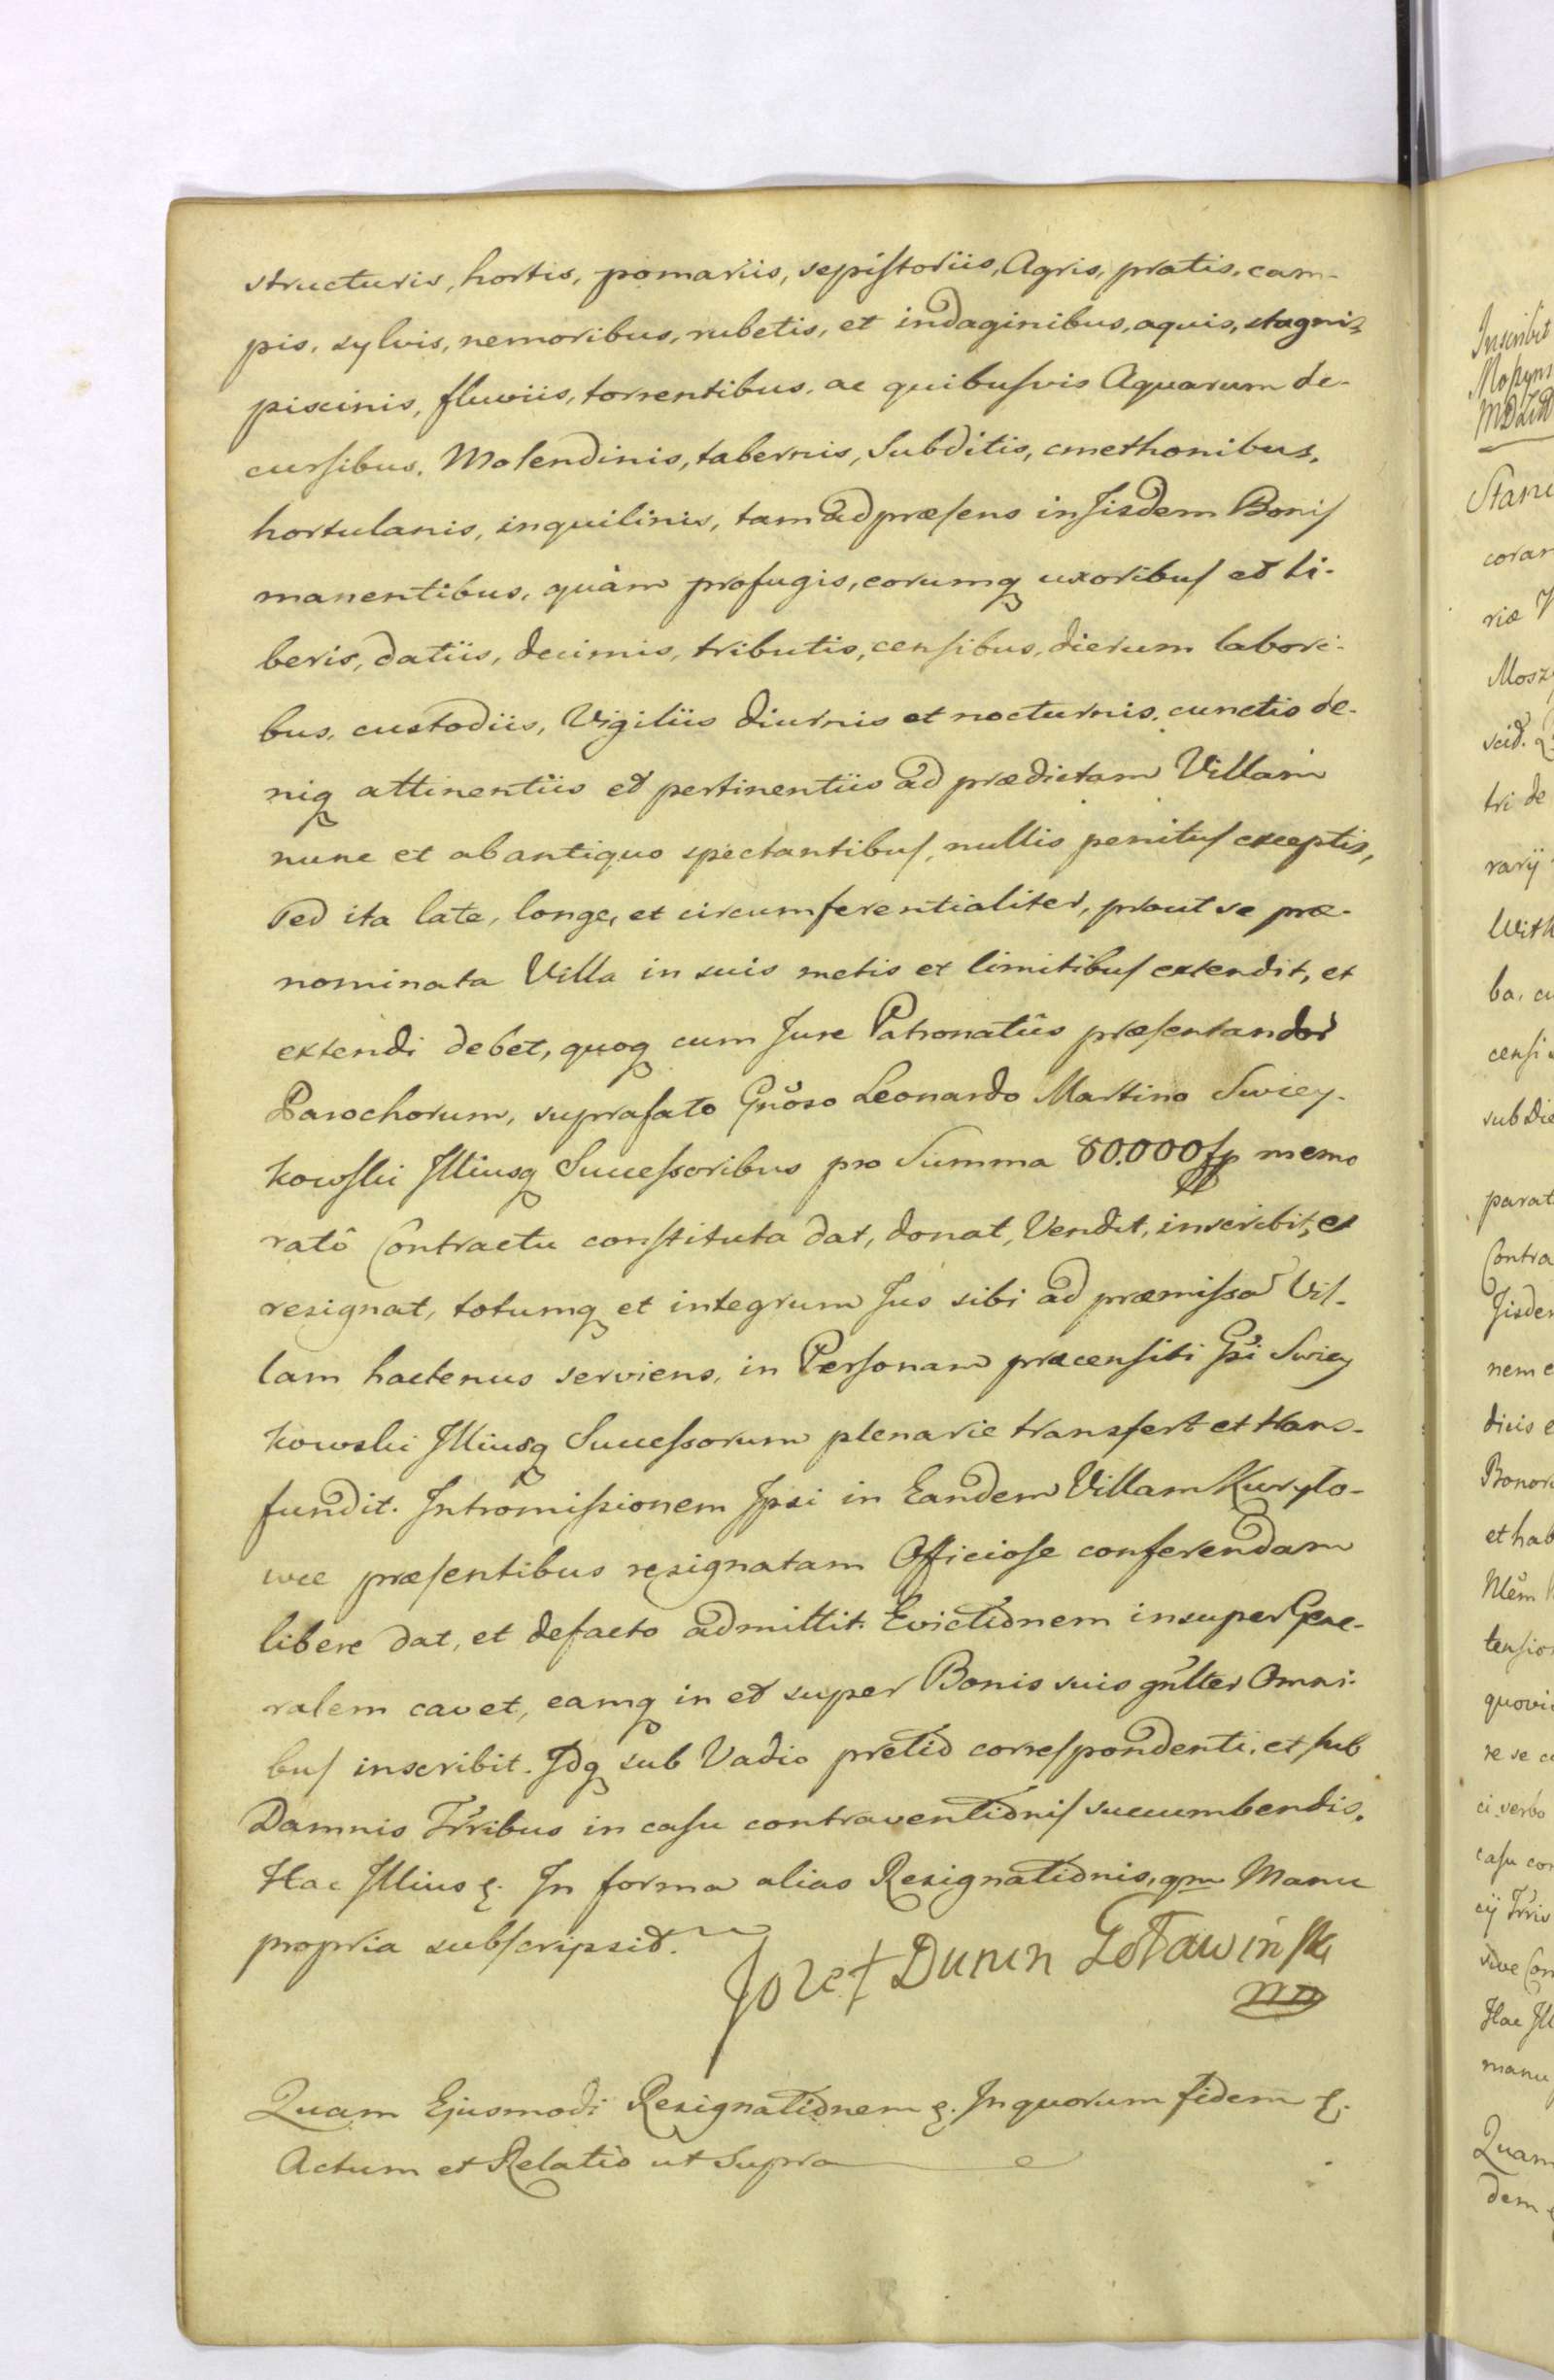 structuris, hortis, pomariis, sepistoriis, Agris, pratis, cam-
pis, sylvis, nemoribus, rubetis, et indaginibus, aquis, stagnis,
piscinis, fluviis, torrentibus, ac quibusvis Aquarum de-
cursibus, Molendinis, tabernis, Subditis, cmethonibus,
hortulanis, inquilinis, tam ad præsens in Iisdem Bonis
manentibus, quàm profugis, eorumq uxoribus et li-
beris, datiis, decimis, tributis, censibus, dierum labori-
bus, custodiis, Vigiliis diurnis et nocturnis, cunctis de-
niq attinentiis et pertinentiis ad prædictam Villam
nunc et ab antiquo spectantibus, nullis penitus exceptis,
sed ita late, longe, et circumferentialiter, prout se præ-
nominata Villa in suis metis et limitibus extendit, et
extendi debet, quoq cum Jure Patronatûs præsentandor
Parochorum, suprafato Gnoso Leonardo Martino Swiey-
kowski Illiusq Successoribus pro Summa 80.000 fp memo
ratô Contractu constituta dat, donat, Vendit, inscribit, et
resignat, totumq et integrum Jus sibi ad præmissã Vil-
lam hactenus serviens, in Personam præcensiti Gsi Swiey
kowski Illiusq Successorum plenarie transfert et trans-
fundit. Intromissionem Ipsi in Eandem Villam Kuryło-
wce præsentibus resignatam Officiose conferendam
libere dat, et defacto admittit. Evictionem insuper Gene-
ralem cavet, eamq in et super Bonis suis gnlter Omni-
bus inscribit. Idq sub Vadio pretio correspondenti, et sub
Damnis Trribus in casu contraventionis succumbendis.
Hac Illius &. In forma alias Resignationis, qm Manu
propria subscripsit.
Jozef Dunin Goławinski
mp
Quam Ejusmodi Resignationem &. In quorum fidem &.
Actum et Relatio ut Supra
Inscribit
Stani
coram
riæ
Mosz
scid.
tri de
rarij
With
ba, cu
censi
subdi
parat
Contra
Iisdem
nem e
dicis e
Bonor
et hab
tensio
quovi
re se
ci verbo
casu con
cij Trris
sive Con
Hac Ill
manu
Quam
dem